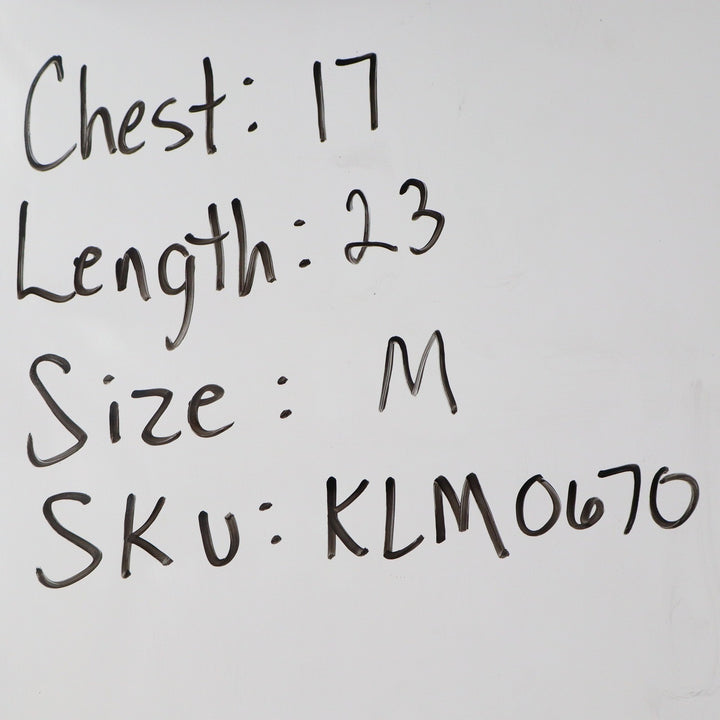 Chest: 17
Length: 23
Size: M
SKU: KLM0670